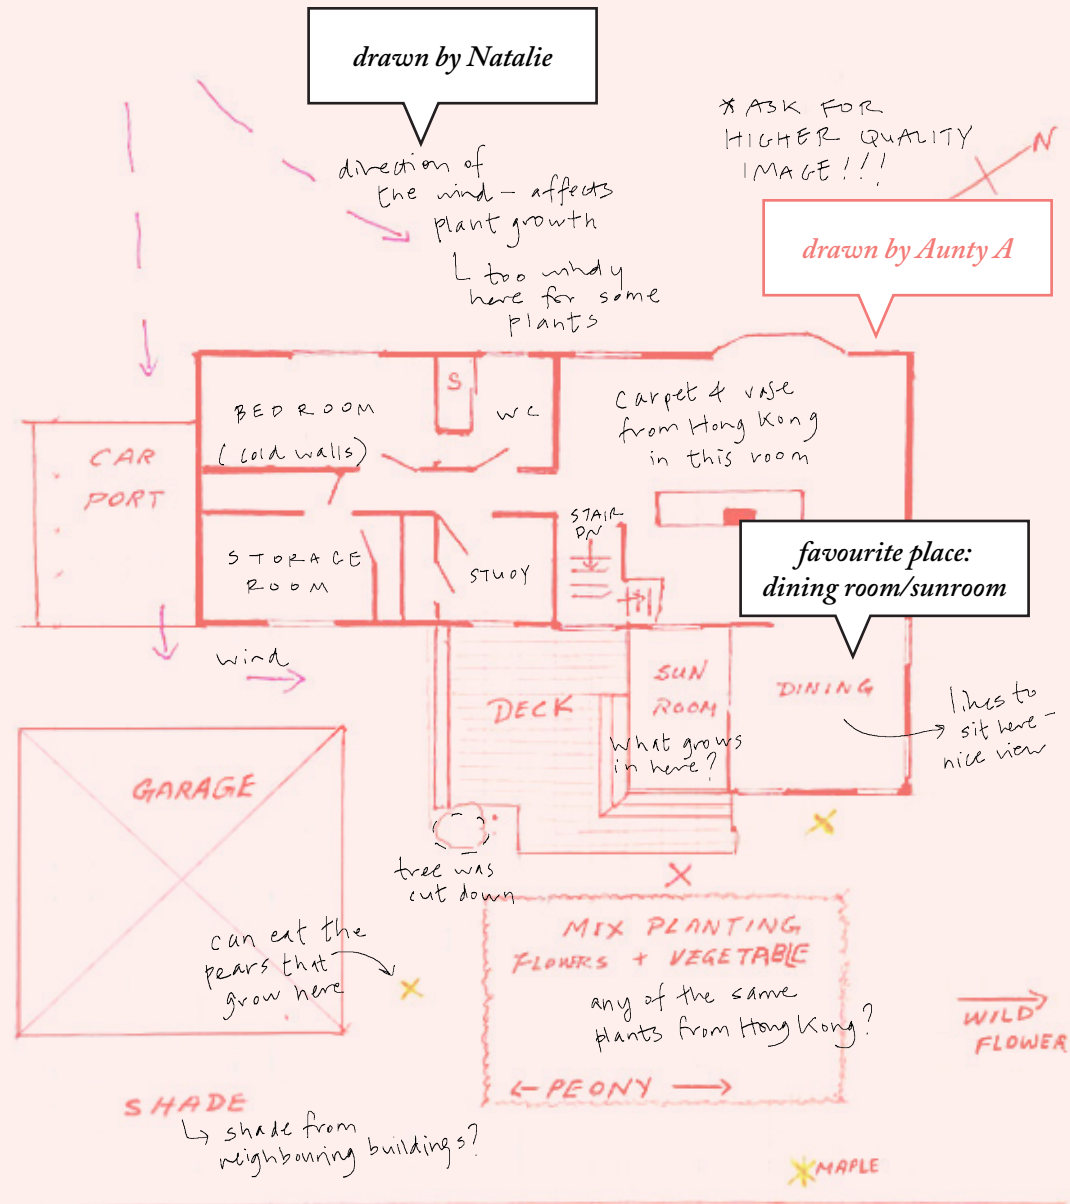 drawn by Natalie
* ASK FOR
HIGHER QUALITY
IMAGE!!!
N
direction of
the wind – affects
plant growth
too windy
here for some
plants
drawn by Aunty A
S
BEDROOM
(cold walls)
WC
carpet & vase
from Hong Kong
in this room
CAR
PORT
STAIR
DN
STORAGE
ROOM
STUDY
favourite place:
dining room/sunroom
wind
DECK
SUN
ROOM
what grows
in here?
DINING
likes to
sit here –
nice view
GARAGE
tree was
cut down
can eat the
pears that
grow here
MIX PLANTING
FLOWERS + VEGETABLE
any of the same
plants from Hong Kong?
← PEONY →
WILD
FLOWER
SHADE
shade from
neighbouring buildings?
MAPLE